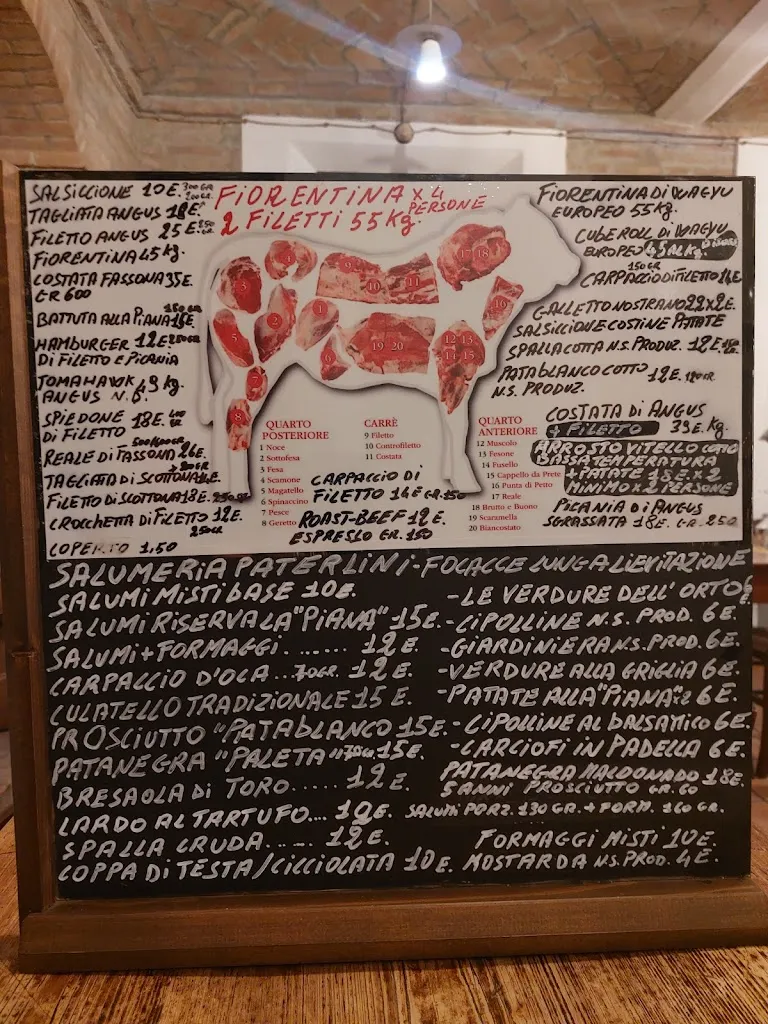 SALSICCIONE 10E. 300GR
TAGLIATA ANGUS 18E. 200GR
FILETTO ANGUS 25 E. 250 GR
FIORENTINA 45 kg.
COSTATA FASSONA 35E.
GR 600
BATTUTA ALLA PIANA 15E. 150GR
HAMBURGER 12E 250GR
DI FILETTO E PICANIA
TOMAHAWK 49 kg.
ANGUS N.6.
SPIEDONE 18E. 400 GR
DI FILETTO
REALE DI FASSONA 26E.
TAGLIATA DI SCOTTONA
FILETTO DI SCOTTONA 18E. 250GR
CROCCHETTA DI FILETTO 12E.
250GR
COPERTO 1,50
FIORENTINA X 4
PERSONE
2 FILETTI 55 Kg.
FIORENTINA DI WAGYU
EUROPEO 55 kg.
CUBEROLL DI WAGYU
EUROPEO 45 AL Kg.
150GR
CARPACCIO DI FILETTO 14E
GALLETTO NOSTRANO 22X2E.
SALSICCIONE COSTINE PATATE
SPALLA COTTA N.S. PRODUZ. 12E
PATABLANCO COTTO 12E. 120GR
N.S. PRODUZ.
COSTATA DI ANGUS
+ FILETTO 39E. Kg.
ARROSTO VITELLO COTTO
BASSA TEMPERATURA
+ PATATE 18E. X 2
MINIMO X 2 PERSONE
PICANIA DI ANGUS
SGRASSATA 18E. GR. 250
1
2
3
4
5
6
7
8
9
10
11
12
13
14
15
16
17
18
19
20
QUARTO
POSTERIORE
1 Noce
2 Sottofesa
3 Fesa
4 Scamone
5 Magatello
6 Spinaccino
7 Pesce
8 Geretto
CARRÈ
9 Filetto
10 Controfiletto
11 Costata
QUARTO
ANTERIORE
12 Muscolo
13 Fesone
14 Fusello
15 Cappello da Prete
16 Punta di Petto
17 Reale
18 Brutto e Buono
19 Scaramella
20 Biancostato
CARPACCIO DI
FILETTO 14E GR.150
ROAST-BEEF 12E.
ESPRESSO GR. 150
SALUMERIA PATERLINI - FOCACCE LUNGA LIEVITAZIONE
SALUMI MISTI BASE 10E.
SALUMI RISERVA LA "PIANA" 15E.
SALUMI + FORMAGGI ...... 12E.
CARPACCIO D'OCA ..70GR. 12E.
CULATELLO TRADIZIONALE 15 E.
PROSCIUTTO "PATABLANCO 15E.
PATANEGRA "PALETA" 70GR 15E.
BRESAOLA DI TORO..... 12E.
LARDO AL TARTUFO... 10E.
SPALLA CRUDA..... 12E.
COPPA DI TESTA/CICCIOLATA 10E.
- LE VERDURE DELL'ORTO 6E
- CIPOLLINE N.S. PROD. 6E.
- GIARDINIERA N.S. PROD. 6E.
- VERDURE ALLA GRIGLIA 6E.
- PATATE ALLA "PIANA" 6E.
- CIPOLLINE AL BALSAMICO 6E.
- CARCIOFI IN PADELLA 6E.
PATANEGRA MALDONADO 18E.
5 ANNI PROSCIUTTO GR. 60
SALUMI PORZ. 130 GR. + FORM. 160 GR.
FORMAGGI MISTI 10E.
MOSTARDA N.S. PROD. 4E.